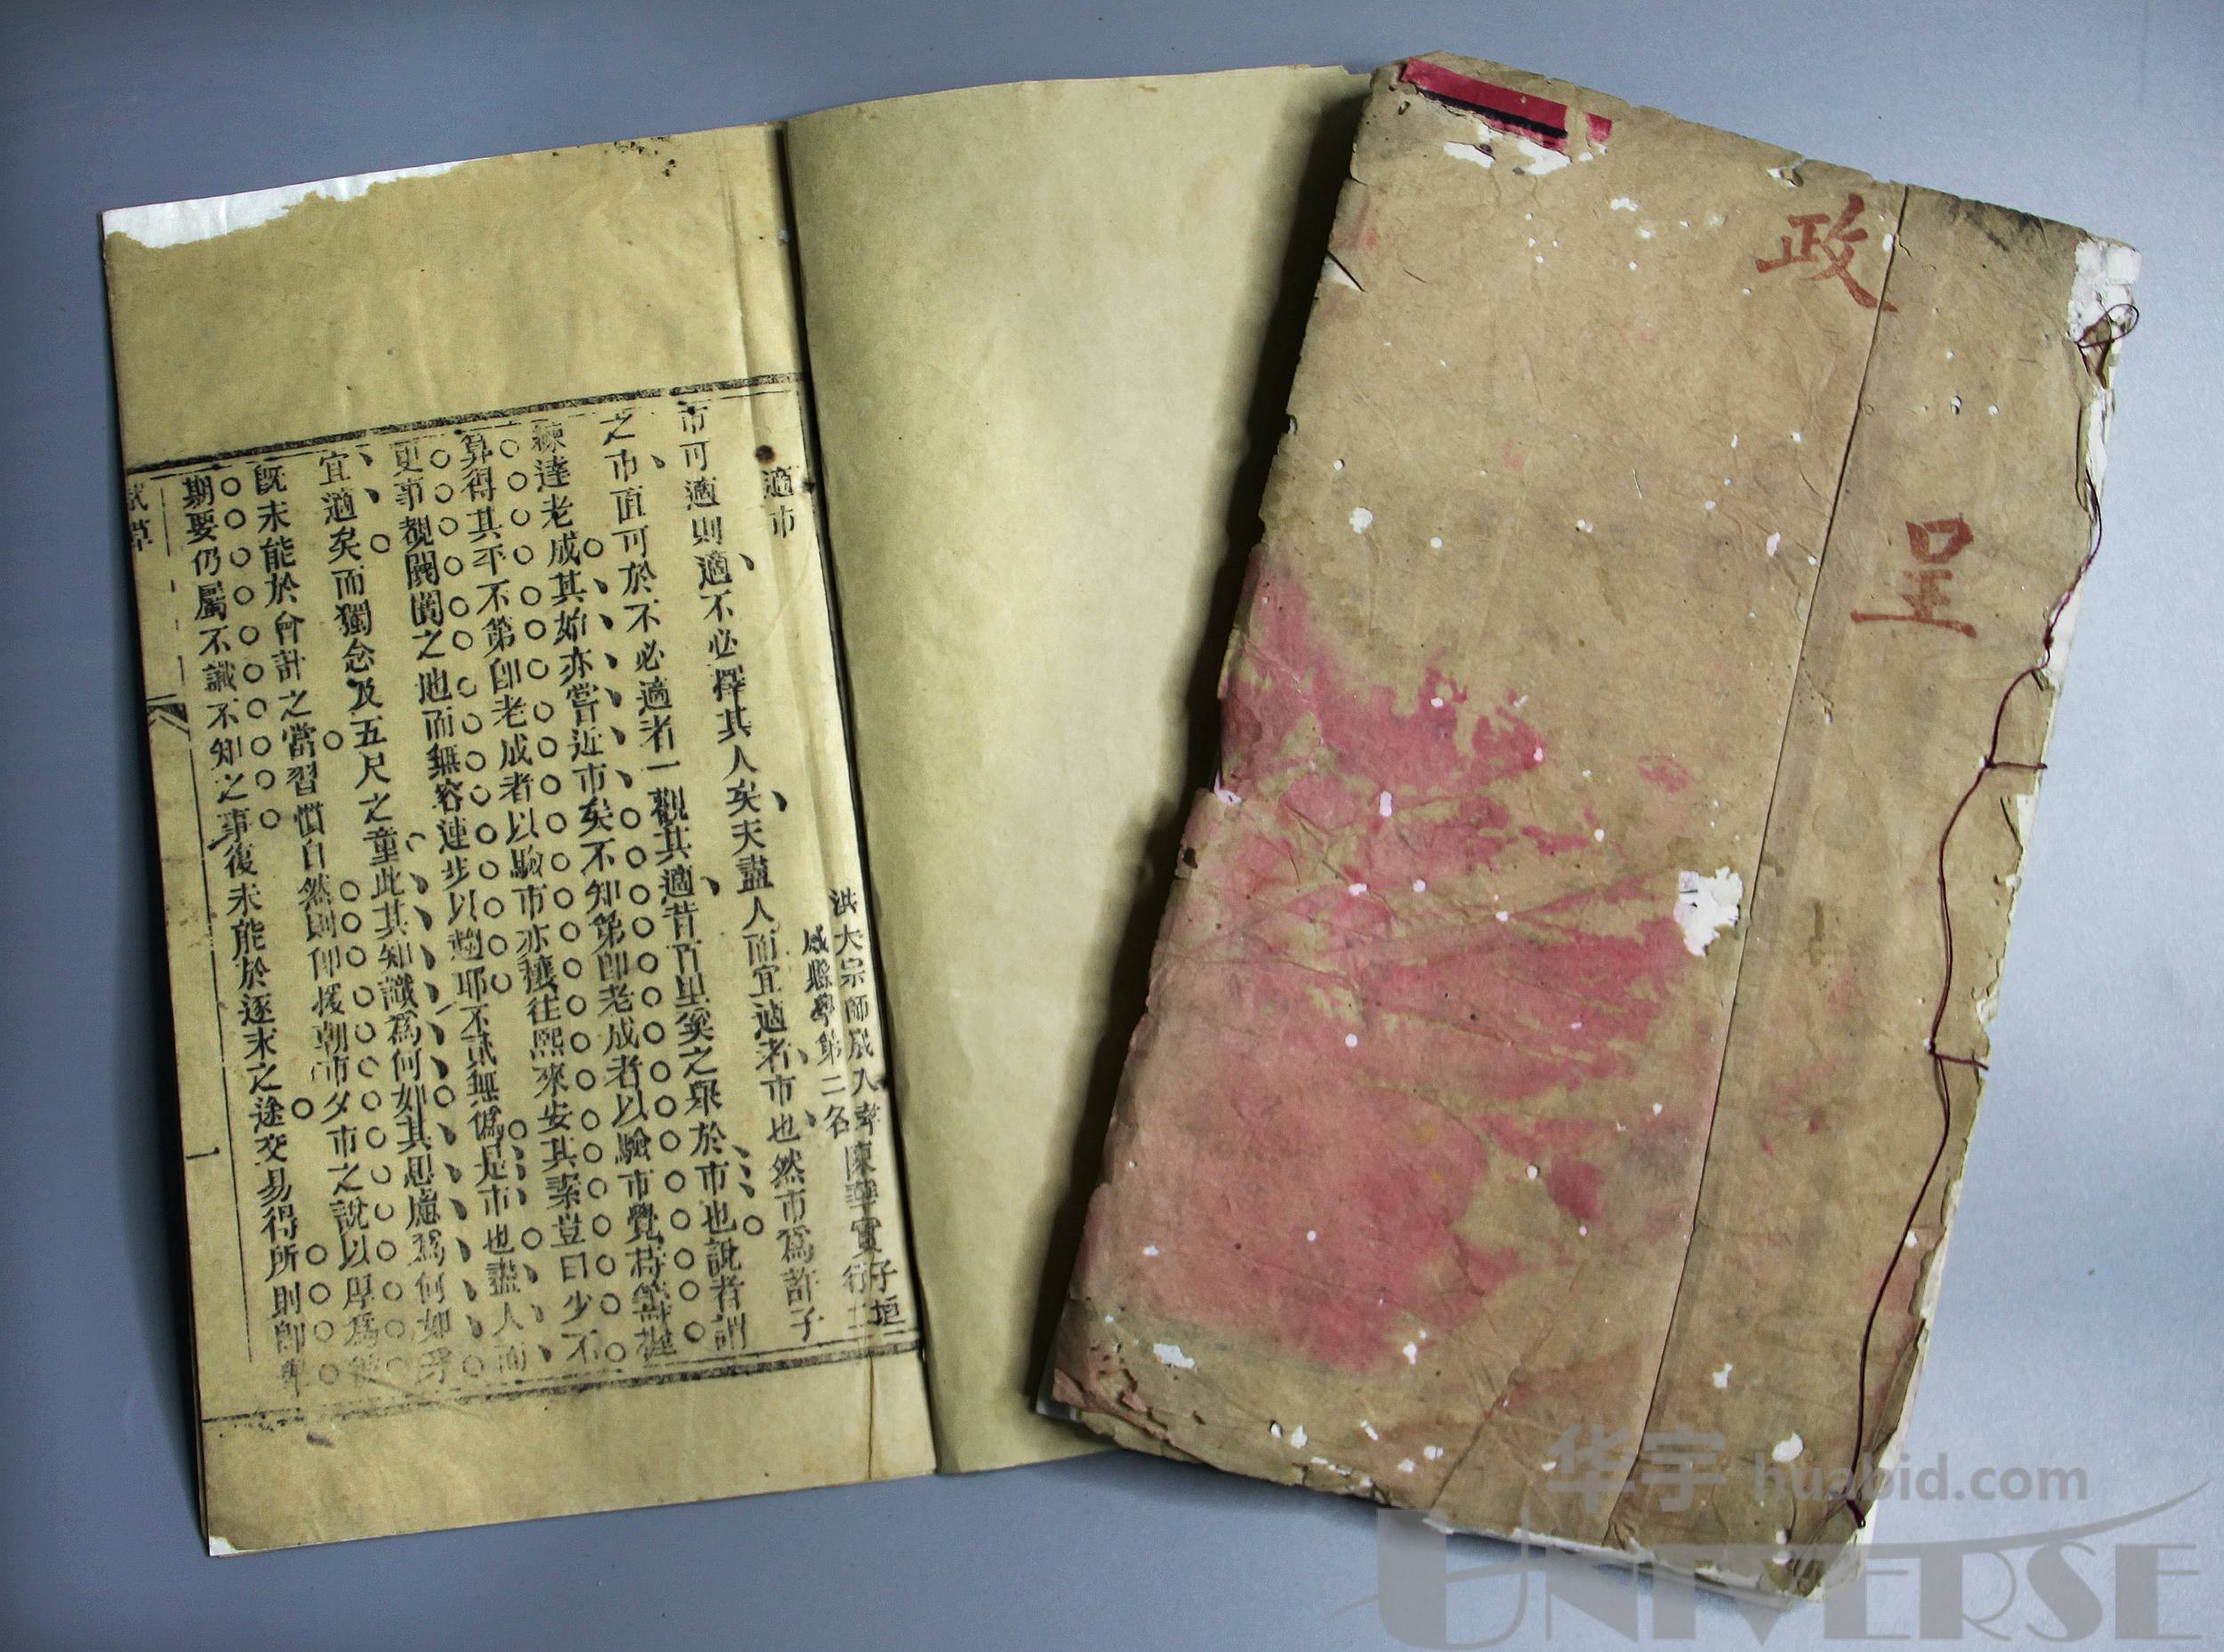 政
呈
適市
洪大宗師歲入
陳華實
子垣
行二
咸縣學第二名
市可適則適不必擇其人矣夫盡人而宜適者市也然市爲許子
之市直可於不必適者一觀其適昔百里奚之舉於市也說者謂
練達老成其始亦嘗近市矣不知第卽老成者以驗市覺持籌握
算得其平不第卽老成者以驗市亦穰往熙來安其素豈曰少不
更事覩闤闠之地而無容連步以趨耶不貳無僞是市也盡人而
宜適矣而獨念及五尺之童此其知識爲何如其思慮爲何如
旣未能於會計之當習慣自然則卽援朝市夕市之說以厚爲
期要仍屬不識不知之事復未能於逐末之途交易得所則卽
試草
一
华宇 huabid.com
UNIVERSE